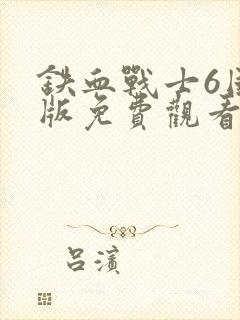 鉄血戰士6國
版免費觀看
呂濱